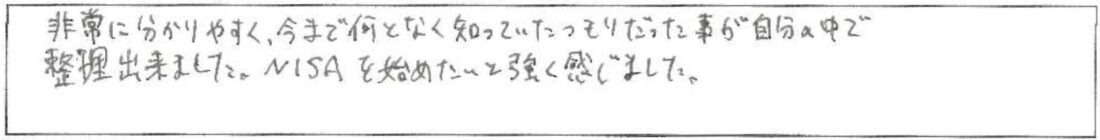 非常に分かりやすく、今まで何となく知っていたつもりだった事が自分の中で
整理出来ました。NISAを始めたいと強く感じました。